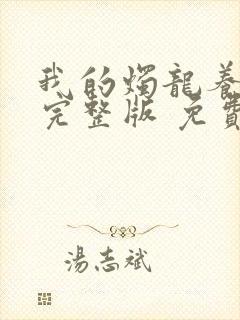 我的燭龍養
完整版 免費
湯志斌